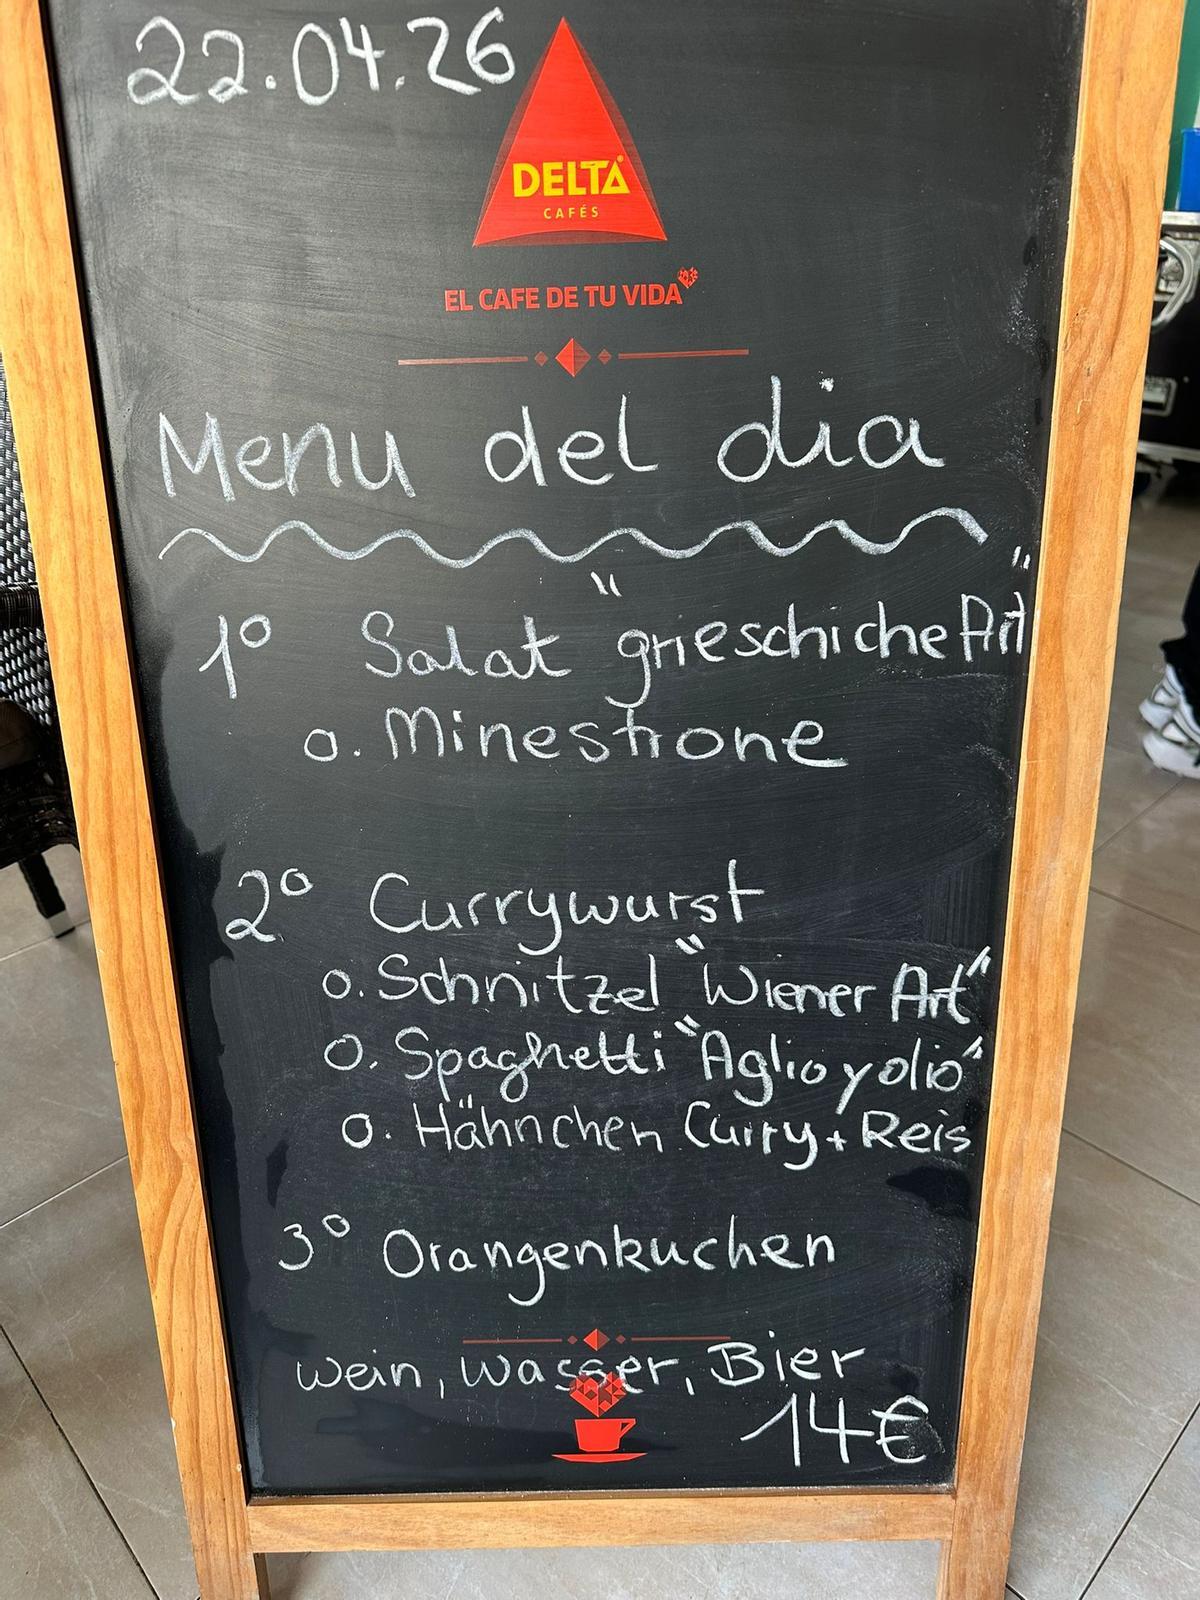 22.04.26
DELTA
CAFÉS
EL CAFE DE TU VIDA
Menu del dia
1º Salat "grieschiche Art"
o. Minestrone
2º Currywurst
o. Schnitzel "Wiener Art"
o. Spaghetti "Aglio y olio"
o. Hähnchen Curry + Reis
3º Orangenkuchen
Wein, Wasser, Bier
14€